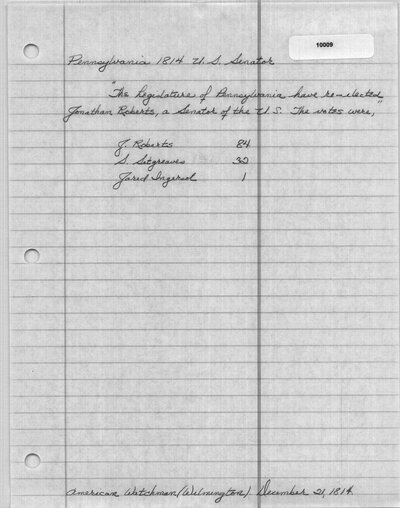 10009
Pennsylvania 1814 U.S. Senator
"The Legislature of Pennsylvania have re-elected
Jonathan Roberts, a Senator of the U.S. The votes were,"
J. Roberts 84
S. Sitgreaves 32
Jared Ingersol 1
American Watchman (Wilmington). December 21, 1814.